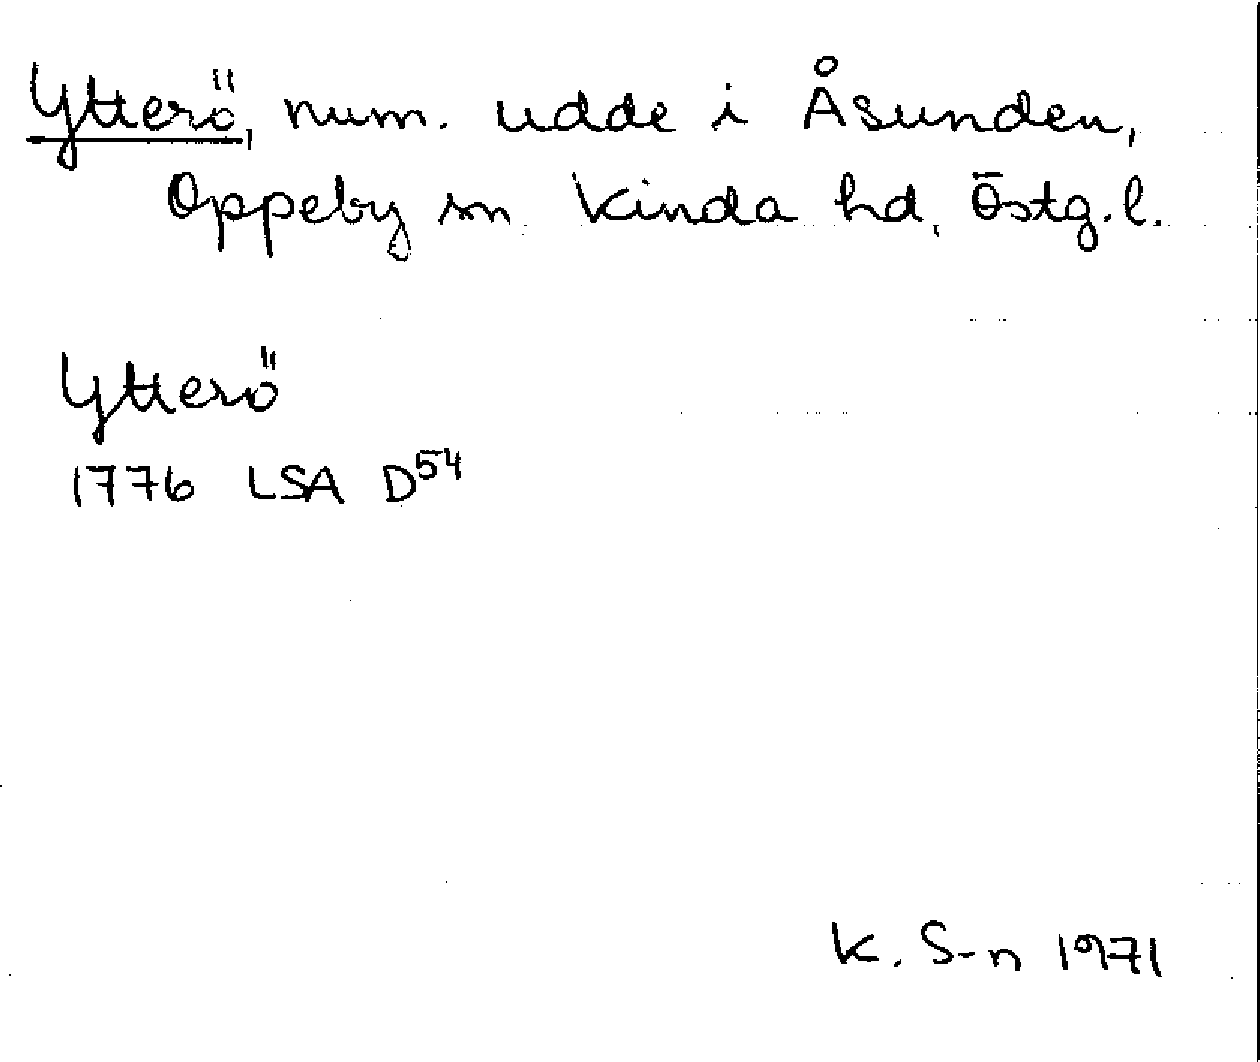 Ytterö, num. udde i Åsunden,
Oppeby sn. Kinda hd, Östg.l.
Ytterö
1776 LSA D⁵⁴
K. S-n 1971